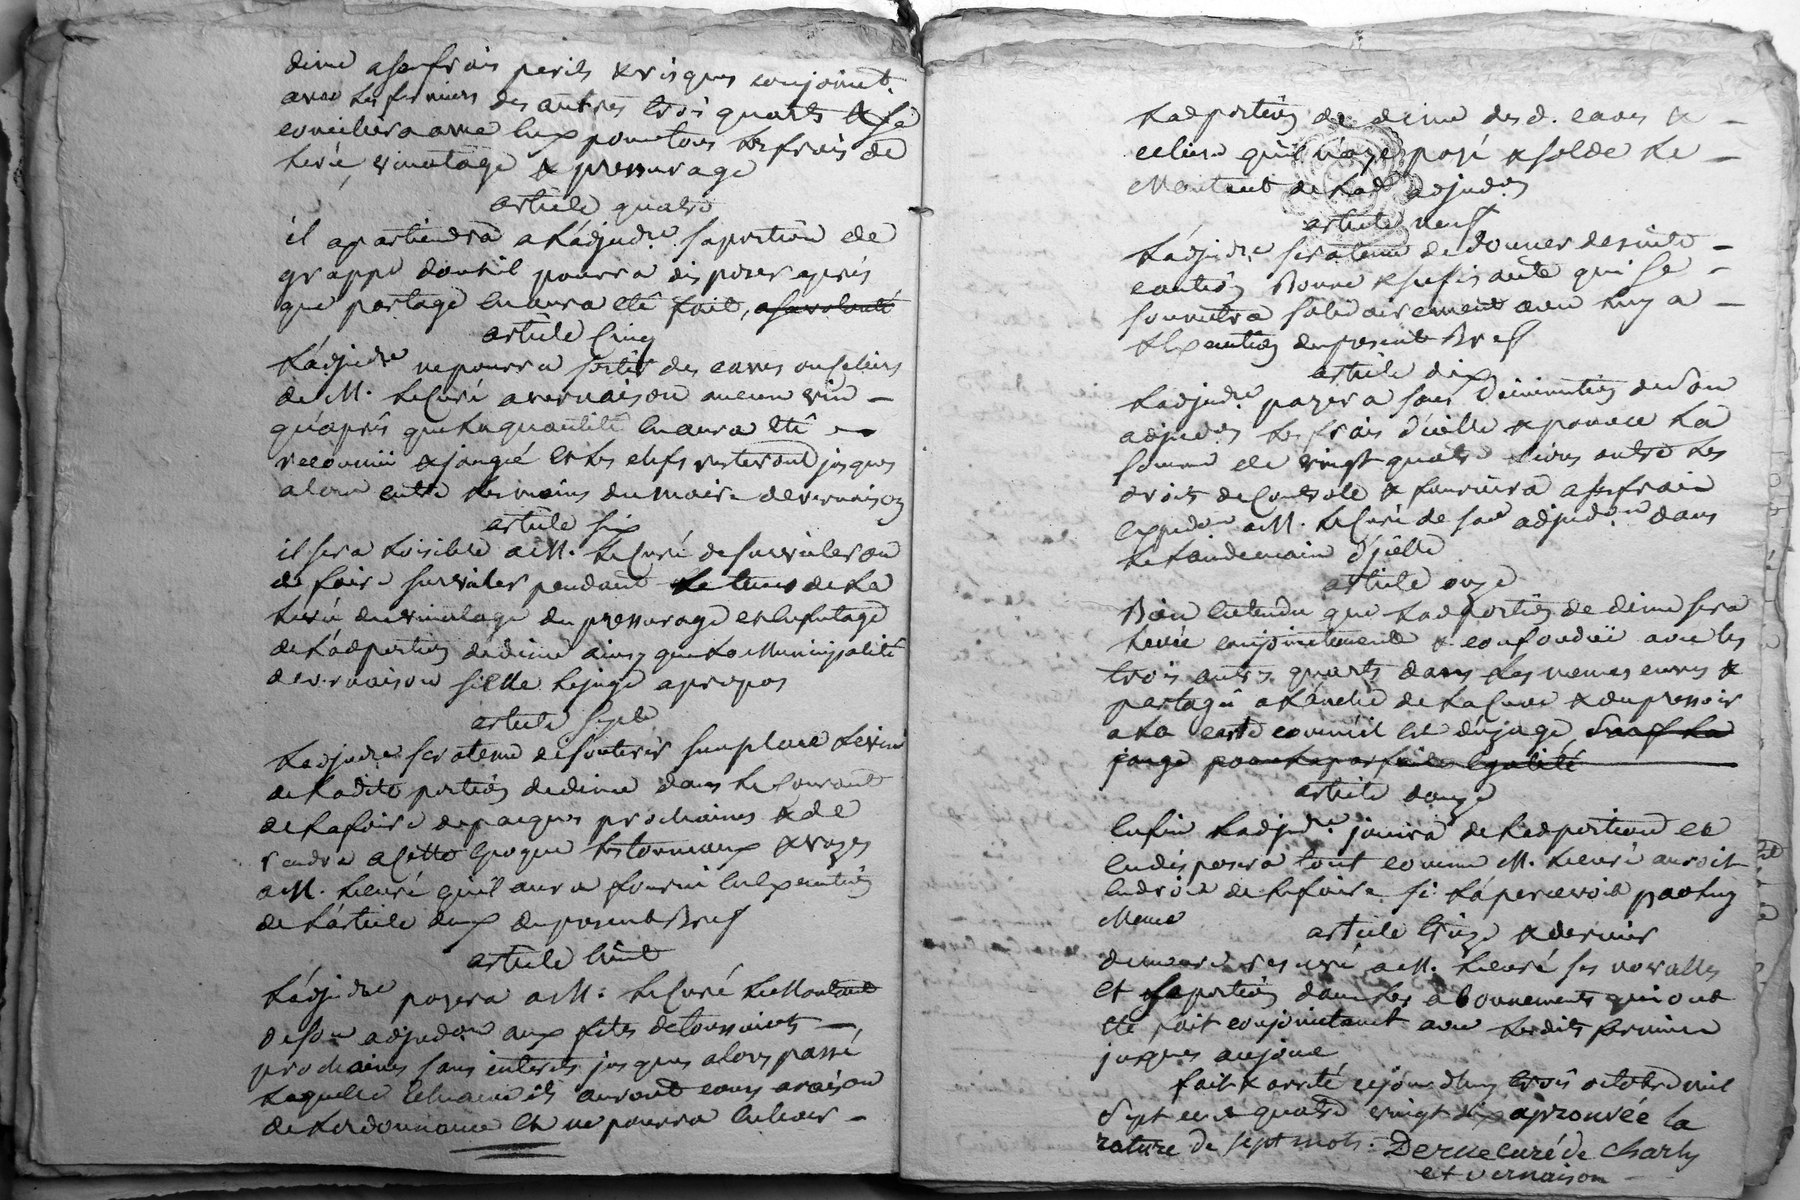 dime a ses frais perils & risques conjoinct.
avec les fermiers des autres trois quarts & se
conciliera avec eux pour tous les frais de
levée, vinatage & pressurage
article quatre
il apartiendra a l'adjudre sa portion de
grappe dont il pourra disposer après
que partage en aura été fait, a sa volonté
article cinq
L'adjudre ne pourra sortir des caves ou celiers
de M. le Curé a vernaison aucun vin —
qu'après que la quantité en aura été —
reconnüe & jaugé et les clefs resteront jusques
alors entre les mains du maire de vernaison
article six
il sera loisible a M. le Curé de surveiller ou
de faire surveiller pendant le tems de la
levée du vinatage du pressurage et enfutage
de lad portion de dime ainsy que la Municipalité
de vernaison si elle le juge a propos
article sept
L'adjudre sera tenu de soutirer sur place le vin
de ladite portion de dime dans le courant
de la foire de paques prochaines & de
rendre a cette epoque les tonneaux & vases
a M. le curé qu'il aura fourni en execution
de l'article deux du present Bref
article huit
L'adjudre payera a M. le Curé le Montant
de son adjudon aux fetes de toussaints —
prochaines sans interets jusques alors passé
laquelle echeance ils auront cours a raison
de l'ordonnance et ne pourra enlever —
lad portion de dime des d. caves & —
celiers qu'il n'aye payé & soldé le —
Montant de lade adjudon
article neuf
L'adjudre sera tenu de donner de suite —
caution Bonne & sufisante qui se —
soumettra solidairement avec luy a —
l'execution du present Bref
article dix
L'adjudre payera sans diminution de son
adjudon les frais d'icelle & pour ce la
somme de vingt quatre livres outre les
droits de Controle & fournira a ses frais
expedon a M. le Curé de son adjudon dans
le landemain d'jcelle
article onze
Bien entendu que lad portion de dime sera
levée conjointement & confondüe avec les
trois autres quarts dans les memes cuves &
partagé a l'anche de la Cuve & du pressoir
a la carte comme il est d'ujage sauf la
jauge pour la parfaite egalité
article douze
Enfin l'adjudre jouira de lad portion et
en disposera tout comme M. le curé auroit
endroit de le faire si la percevoit par luy
Meme
article treize & dernier
demeure reservé a M. le curé ses novalles
et sa portion dans les abonnements qui ont
été fait conjointement avec lesdits fermiers
jusques aujour
fait & arrêté cejourd'huy trois octobre mil
sept cent quatre vingt dix aprouvée la
rature de sept mots. Derue curé de Charly
et vernaison